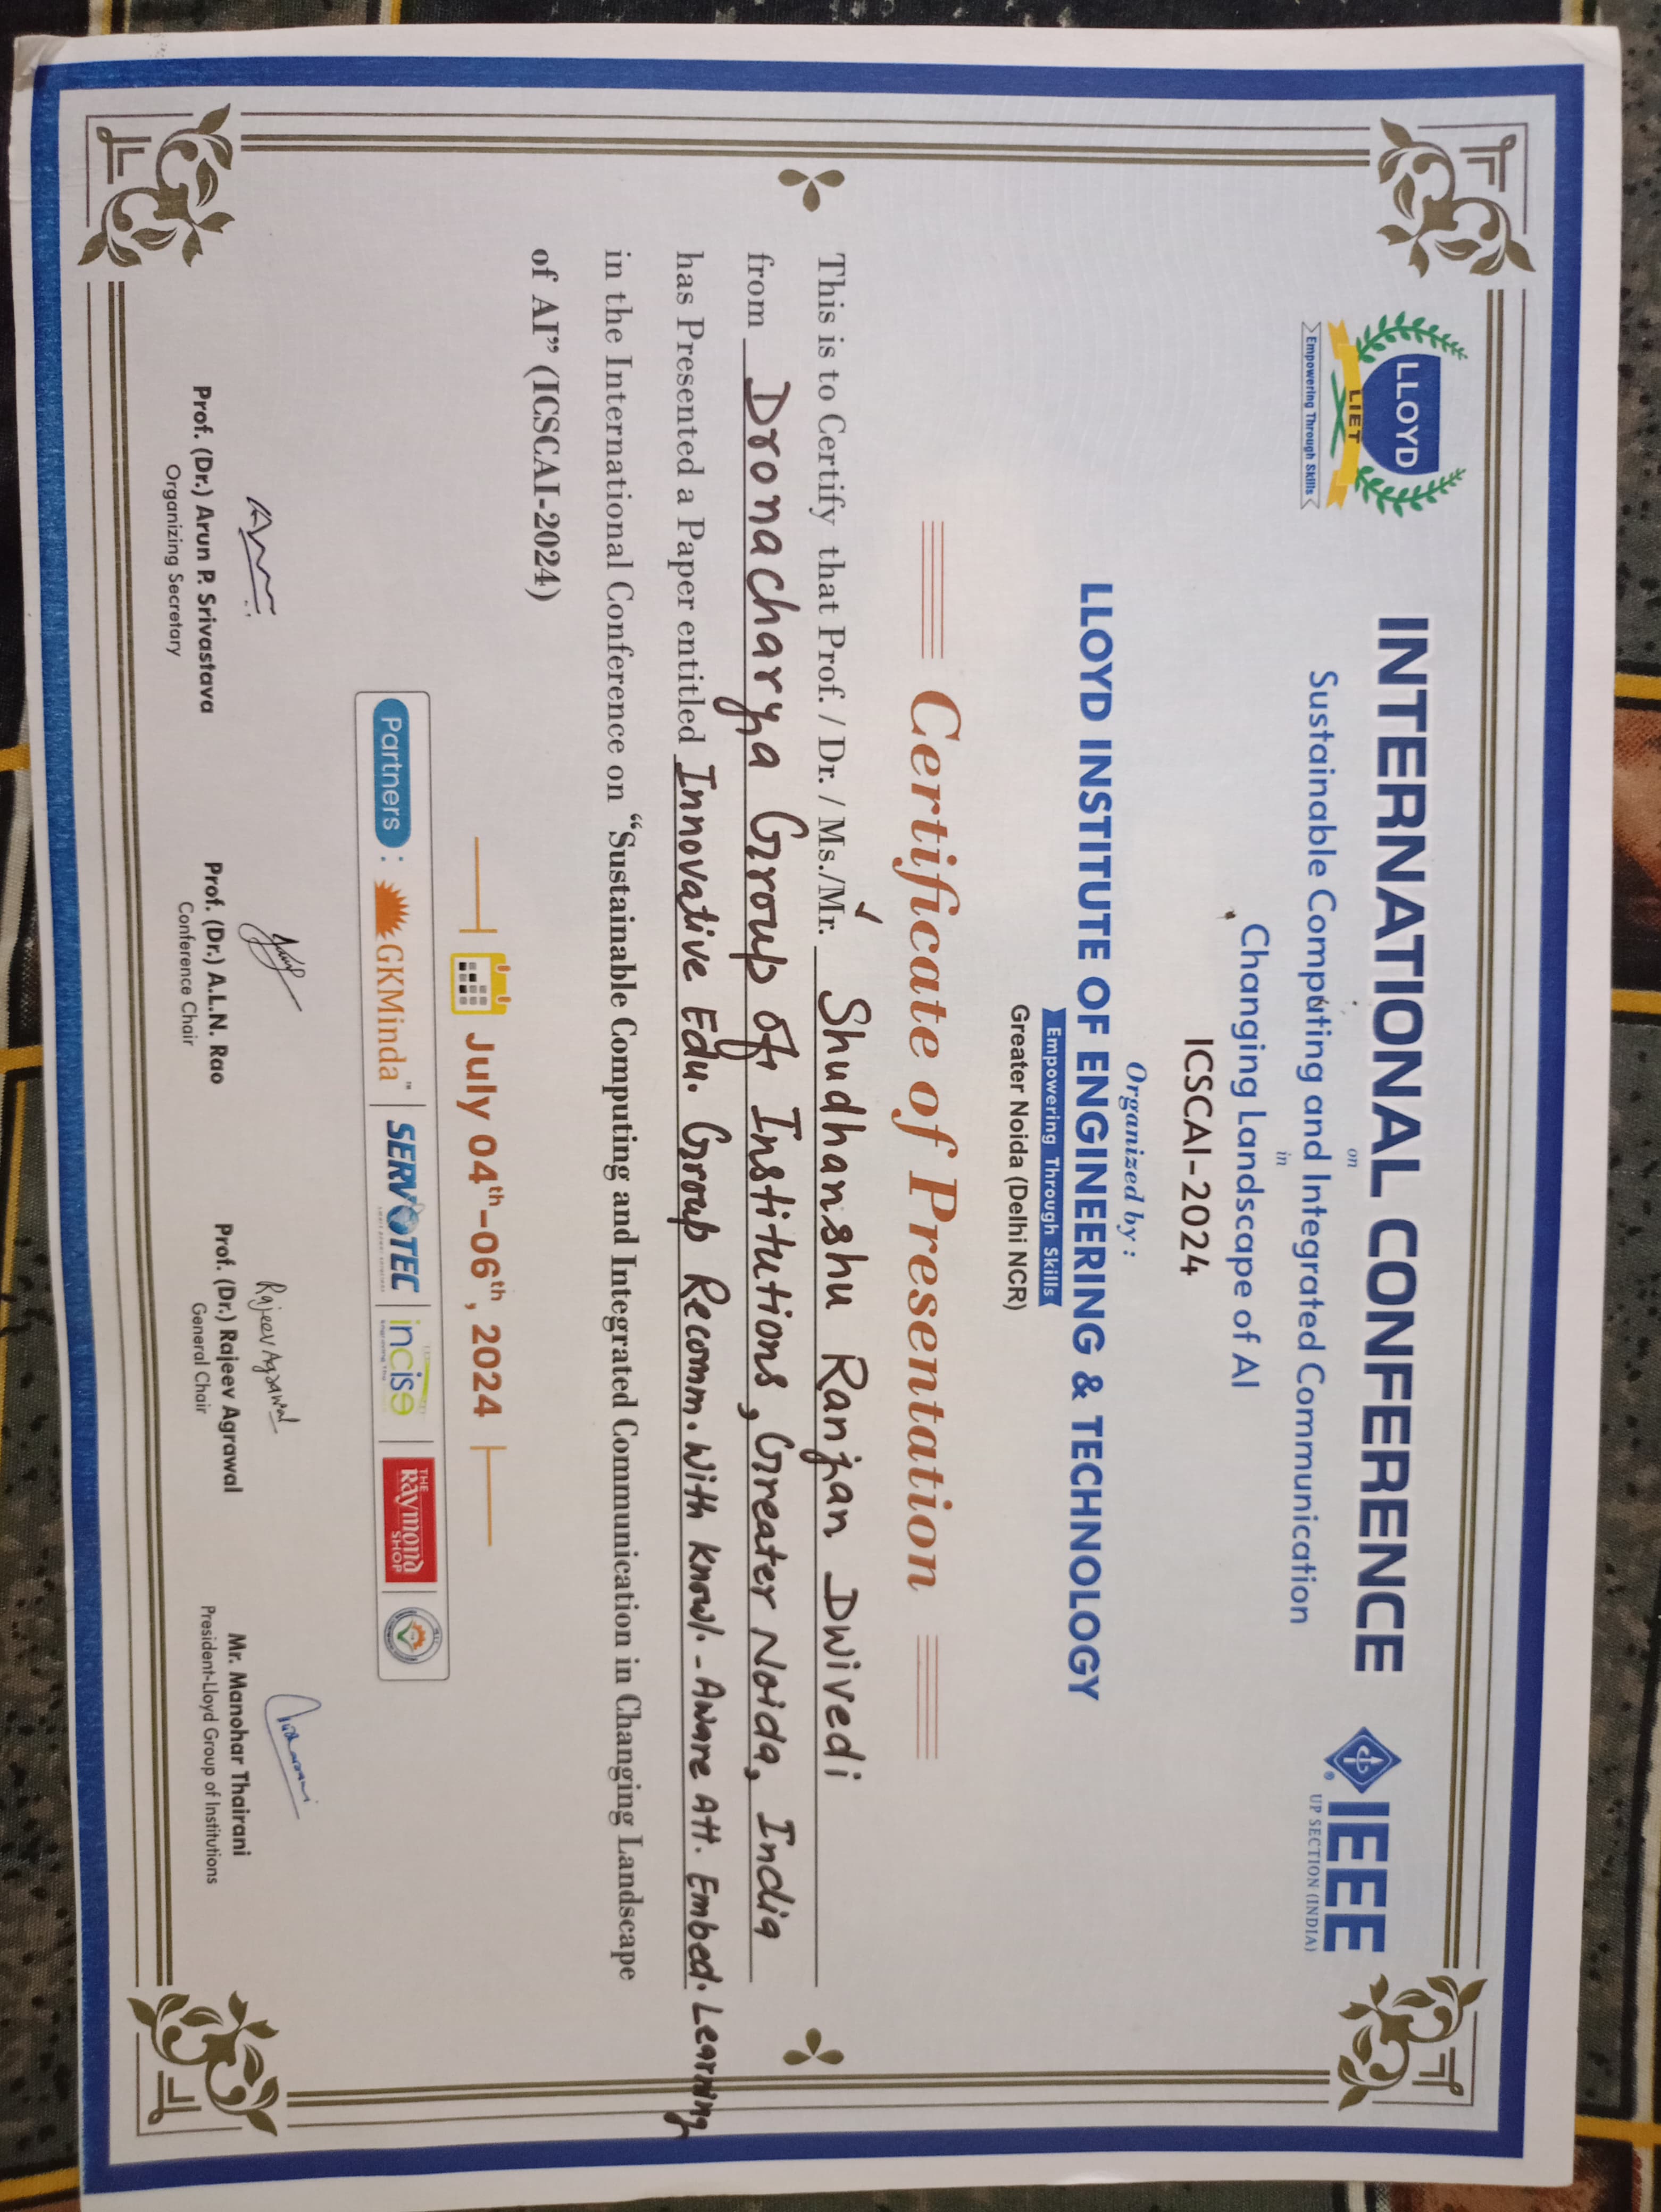 LLOYD
LIET
Empowering Through Skills
INTERNATIONAL CONFERENCE
on
Sustainable Computing and Integrated Communication
in
Changing Landscape of AI
ICSCAI-2024
IEEE
UP SECTION (INDIA)
Organized by :
LLOYD INSTITUTE OF ENGINEERING & TECHNOLOGY
Empowering Through Skills
Greater Noida (Delhi NCR)
Certificate of Presentation
This is to Certify that Prof. / Dr. / Ms./Mr. Shudhanshu Ranjan Dwivedi
from Dronacharya Group of Institutions, Greater Noida, India
has Presented a Paper entitled Innovative Edu. Group Recomm. With Knowl. - Aware Att. Embed. Learning
in the International Conference on “Sustainable Computing and Integrated Communication in Changing Landscape
of AI” (ICSCAI-2024)
July 04th-06th, 2024
Partners : GKMinda™ SERVOTEC incise THE RAYMOND SHOP
Rajeev Agrawal
Prof. (Dr.) Arun P. Srivastava
Organizing Secretary
Prof. (Dr.) A.L.N. Rao
Conference Chair
Prof. (Dr.) Rajeev Agrawal
General Chair
Mr. Manohar Thairani
President-Lloyd Group of Institutions